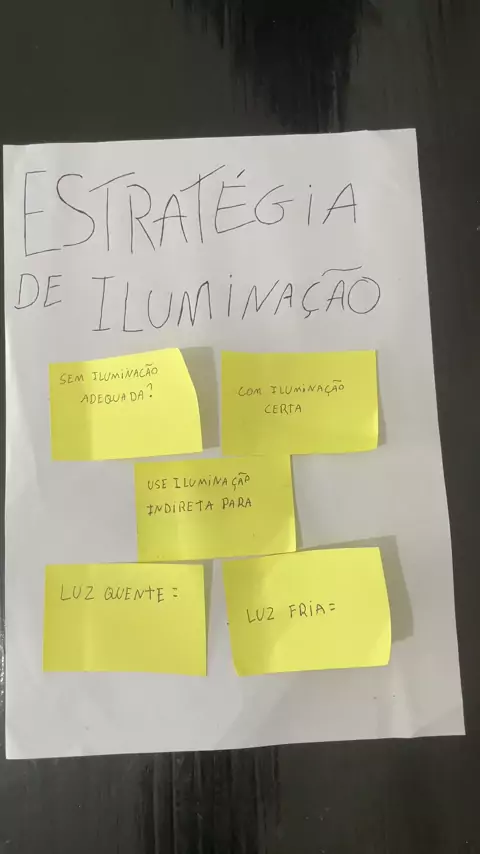 ESTRATÉGIA
DE ILUMINAÇÃO
SEM ILUMINAÇÃO
ADEQUADA?
COM ILUMINAÇÃO
CERTA
USE ILUMINAÇÃO
INDIRETA PARA
LUZ QUENTE =
LUZ FRIA =